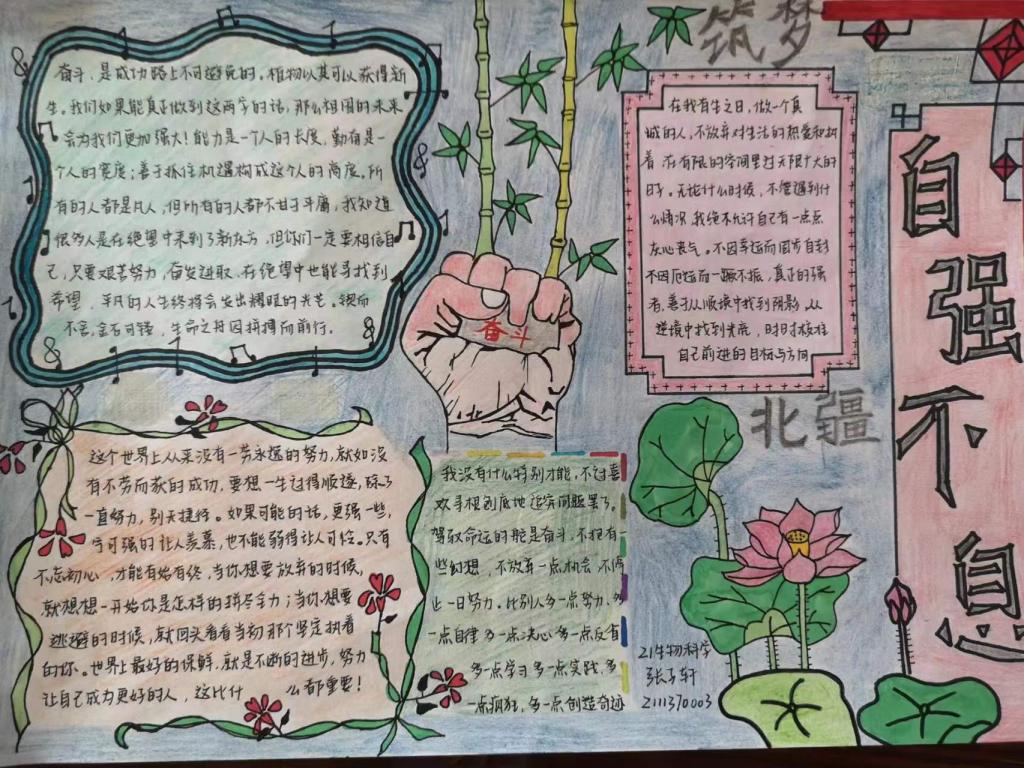 筑梦
北疆
自强不息
奋斗，是成功路上不可避免的。植物以其可以获得新
生。我们如果能真正做到这两字的话，那么祖国的未来
会为我们更加强大！能力是一个人的长度，勤奋是一
个人的宽度；善于抓住机遇构成这个人的高度。所
有的人都是凡人，但所有的人都不甘于平庸。我知道
很多人是在绝望中来到了新东方，但你们一定要相信自
己，只要艰苦努力，奋发进取，在绝望中也能寻找到
希望，平凡的人生终将会发出耀眼的光芒。锲而
不舍，金石可镂，生命之舟因拼搏而前行。
奋斗
在我有生之日，做一个真
诚的人，不放弃对生活的热爱和执
着，在有限的空间里过无限广大的
日子。无论什么时候，不管遇到什
么情况，我绝不允许自己有一点点
灰心丧气。不因幸运而固步自封
不因厄运而一蹶不振。真正的强
者，善于从顺境中找到阴影，从
逆境中找到光底，时时校准
自己前进的目标与方向
这个世界上从来没有一劳永逸的努力，就如没
有不劳而获的成功。要想一生过得顺遂，除了
一直努力，别无捷径。如果可能的话，更强一些，
宁可强的让人羡慕，也不能弱得让人可怜。只有
不忘初心，才能有始有终，当你想要放弃的时候，
就想想一开始你是怎样的拼尽全力；当你想要
逃避的时候，就回头看看当初那个坚定执着
的你。世界上最好的保鲜，就是不断的进步，努力
让自己成为更好的人，这比什么都重要！
我没有什么特别才能，不过喜
欢寻根刨底地追究问题罢了。
驾驭命运的舵是奋斗，不抱有
一些幻想，不放弃一点机会，不停
止一日努力。比别人多一点努力、多
一点自律多一点决心多一点反省
多一点学习多一点实践，多
一点疯狂，多一点创造奇迹
21生物科学
张子轩
2111370003